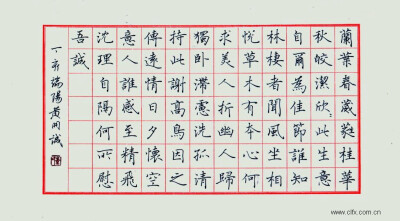 蘭葉春葳蕤桂華
秋皎潔欣:此生意
自爾為佳節誰知
林棲者聞風坐相
悅草木有本心何
求美人折幽人歸
獨臥滯慮洗孤清
持此謝高鳥因之
傳遠情日夕懷空
意人誰感至精飛
沈理自隔何所慰
吾誠
丁亥端陽黃同誠
www.clfx.com.cn